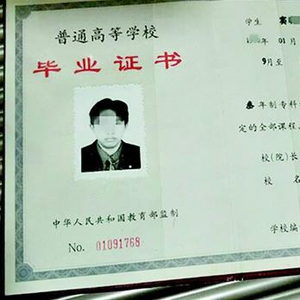 普通高等学校
毕业证书
中华人民共和国教育部监制
No. 01091768
学生
年 01 月
9月至
叁年制专科
定的全部课程
校(院)长
校 名
学校编